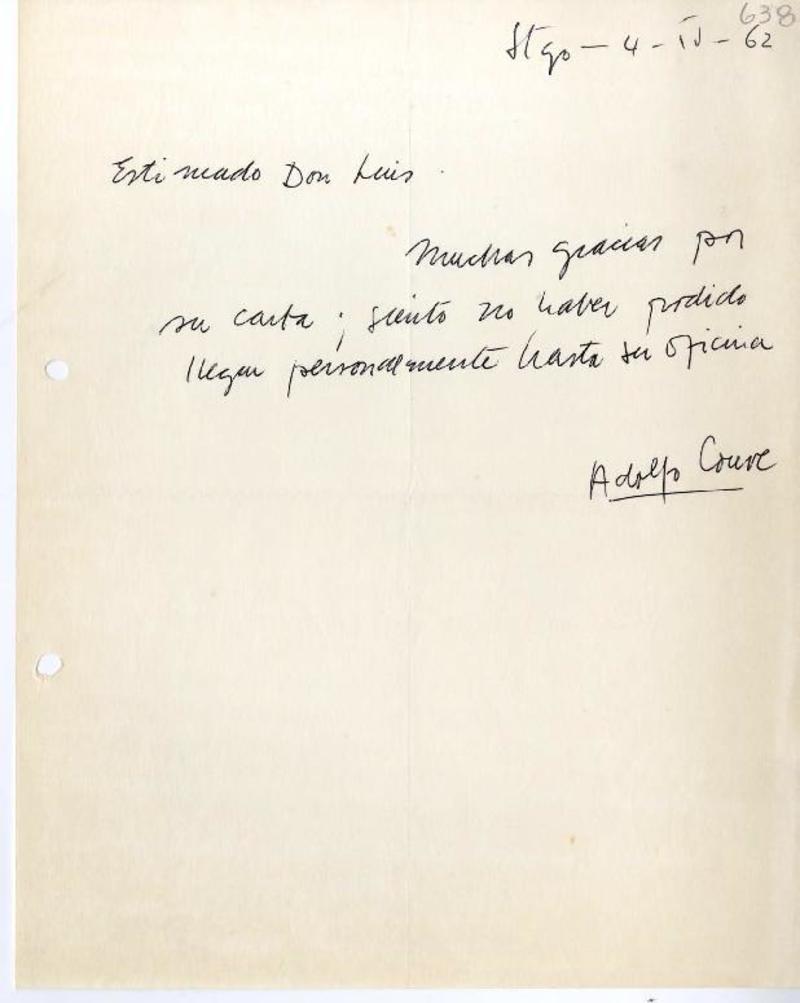 638
Stgo - 4 - IV - 62
Estimado Don Luis.
Muchas gracias por
su carta; siento no haber podido
llegar personalmente hasta su oficina
Adolfo Couve